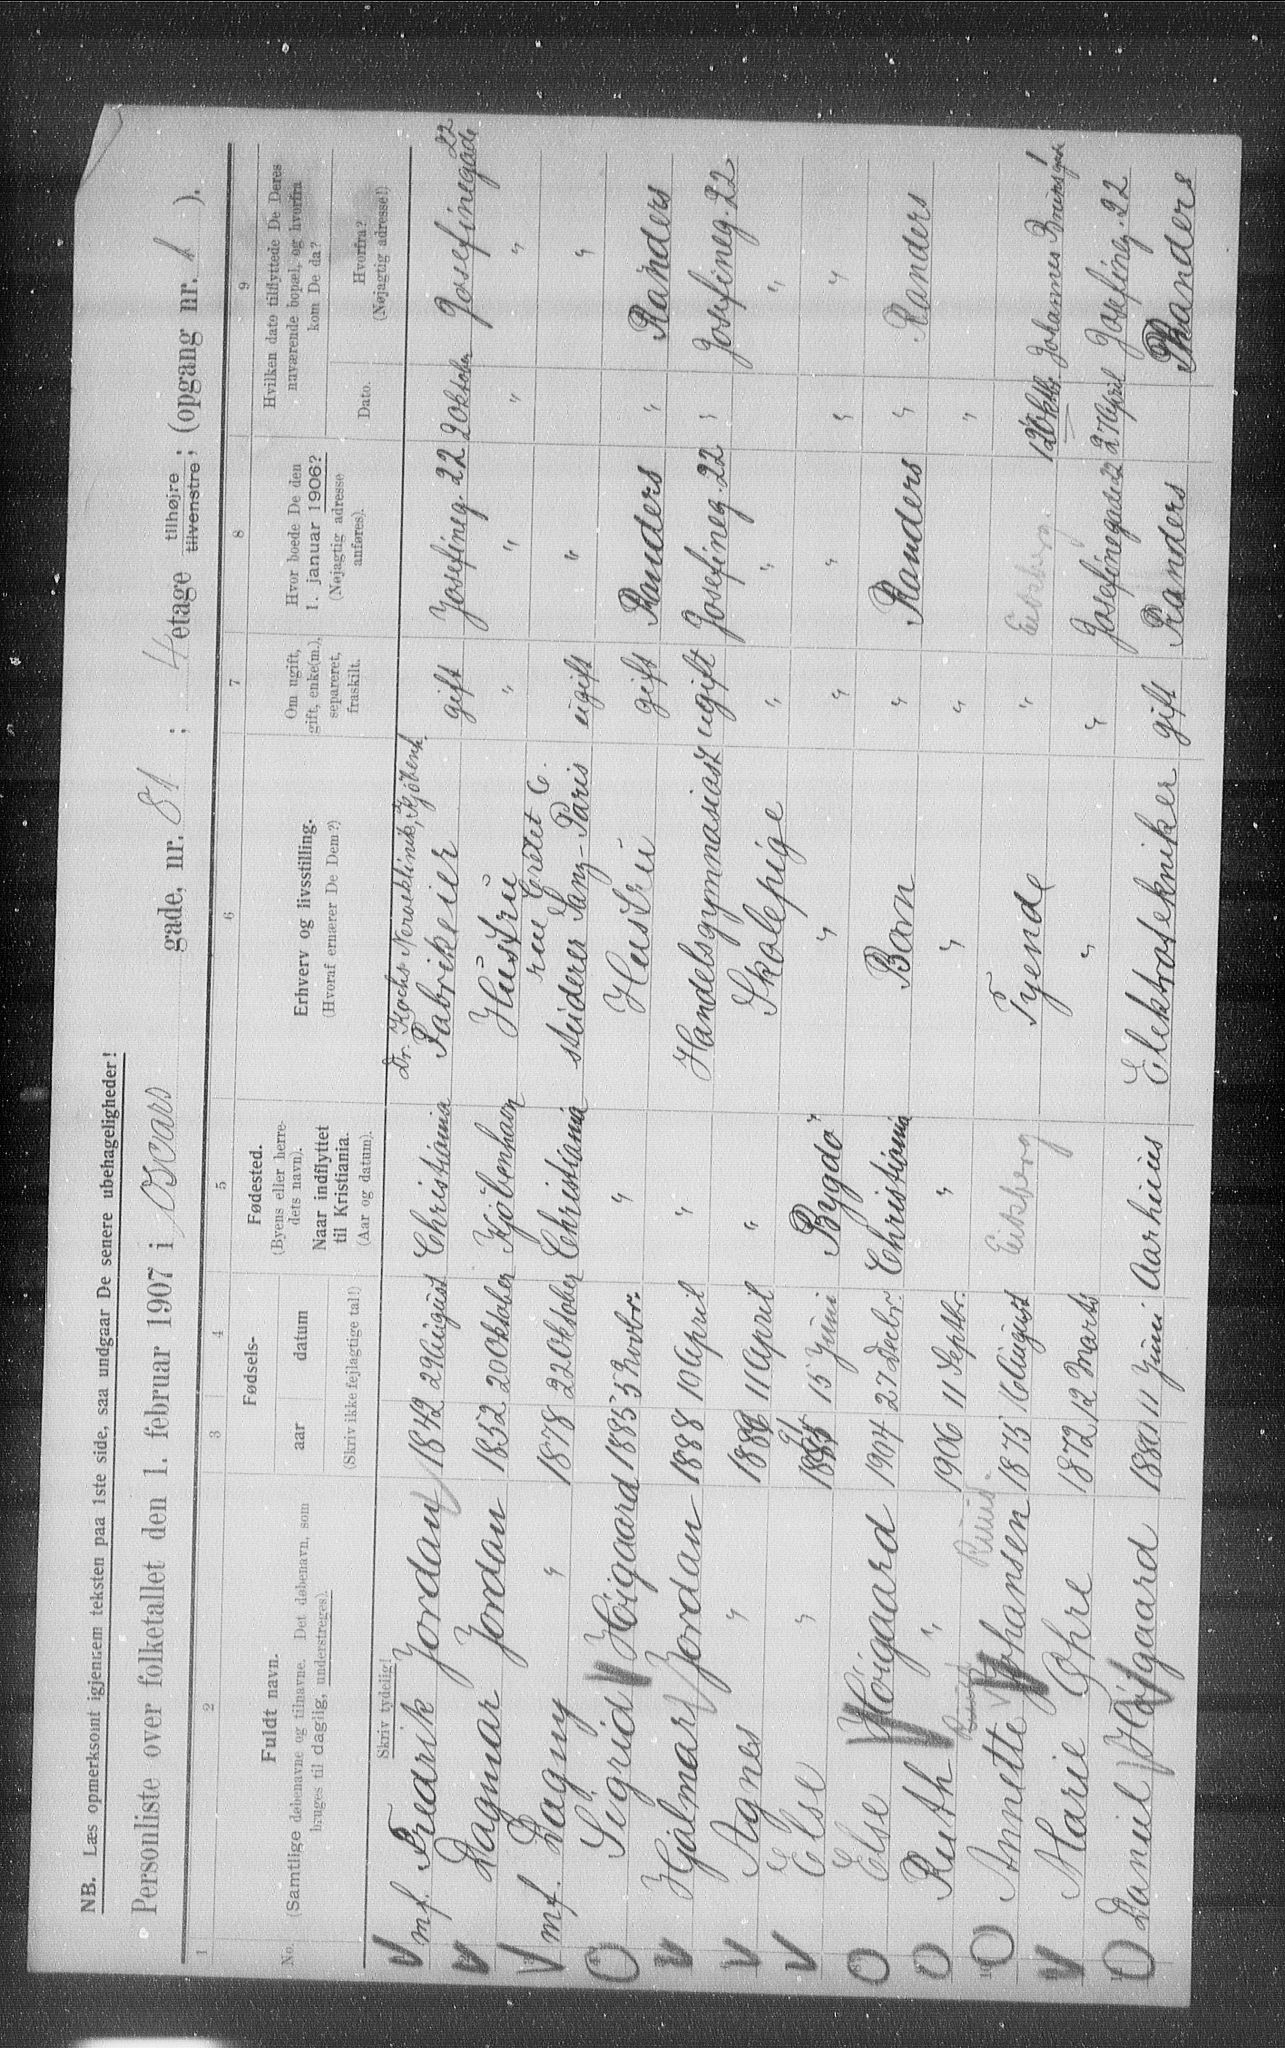 NB. Læs opmerksomt igjennem teksten paa 1ste side, saa undgaar De senere ubehageligheder!
Personliste over folketallet den 1. februar 1907 i Oscars gade, nr. 81 ; 4 etage tilhøjre tilvenstre ; (opgang nr. 1 ).
1 2 3 4 5 6 7 8 9
No. Fuldt navn. (Samtlige døbenavne og tilnavne. Det døbenavn, som bruges til daglig, understreges).
Fødsels- aar datum (Skriv ikke fejlagtige tal!)
Fødested. (Byens eller herredets navn). Naar indflyttet til Kristiania. (Aar og datum).
Erhverv og livsstilling. (Hvoraf ernærer De Dem?)
Om ugift, gift, enke(m.), separeret, fraskilt.
Hvor boede De den 1. januar 1906? (Nøjagtig adresse anføres).
Hvilken dato tilflyttede De Deres nuværende bopæl, og hvorfra kom De da? Dato. Hvorfra? (Nøjagtig adresse!)
Skriv tydelig!
Dr. Kochs Nerveklinik, Kjøbenh.
mf. Fredrik Jordan 1842 29 August Christiania Fabrikeier gift Josefineg. 22 2 Oktober Josefinegade 22
Dagmar Jordan 1852 20 Oktober Kjøbenhavn Hustru " " " "
mf. Dagny " 1878 22 Oktober Christiania studerer Sang - Paris ugift " "
Sigrid Høigaard 1883 5 Novbr. " Hustru gift Randers " Randers
Hjalmar Jordan 1888 10 April " Handelsgymnasiast ugift Josefineg. 22 " Josefineg. 22
Agnes " 11 April " Skolepige " " "
Else " 15 Juni Bygdø " " " " "
Else Høigaard 1904 27 Decbr. Christiania Barn " Randers " Randers
Ruth " 1906 11 Septbr. " " " "
Ruud.
Annette Johansen 1875 16 August Eidsberg Tyende " Eidsberg. Oktbr. Johannes Brunsgade 1
Marie Gohre 1872 12 Marts " " Josefinegade 22 27 April Josefineg. 22
Daniel Højgaard 1880 11 Juni Aarhuus Elektrotekniker gift Randers Randers